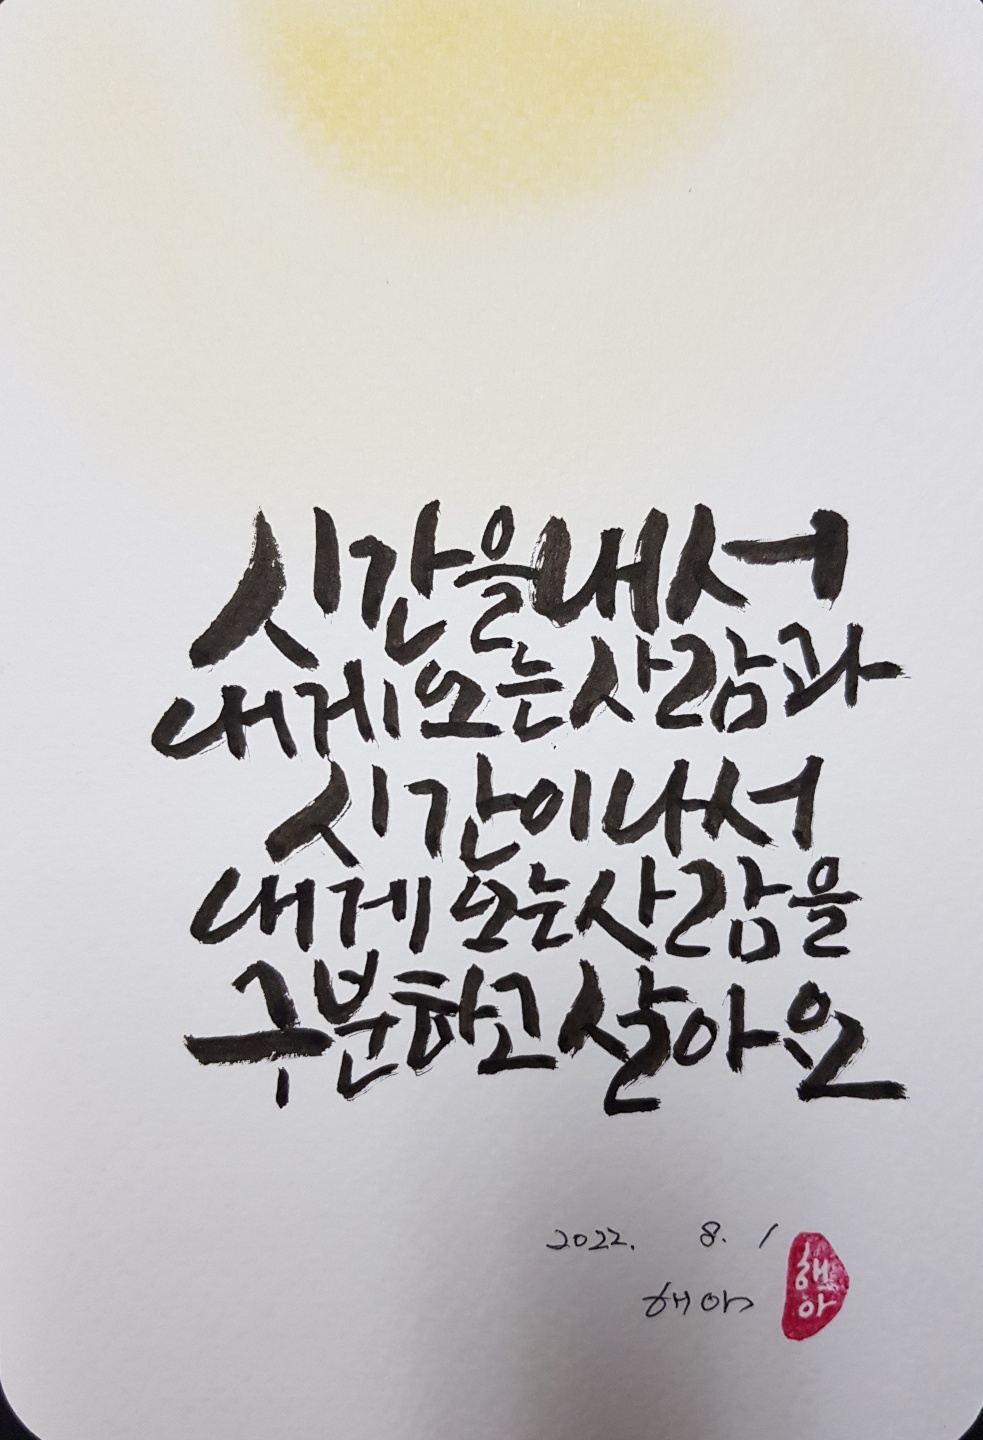 시간을내서
내게오는사람과
시간이나서
내게오는사람을
구분하고살아오
2022. 8. 1
해아
해아